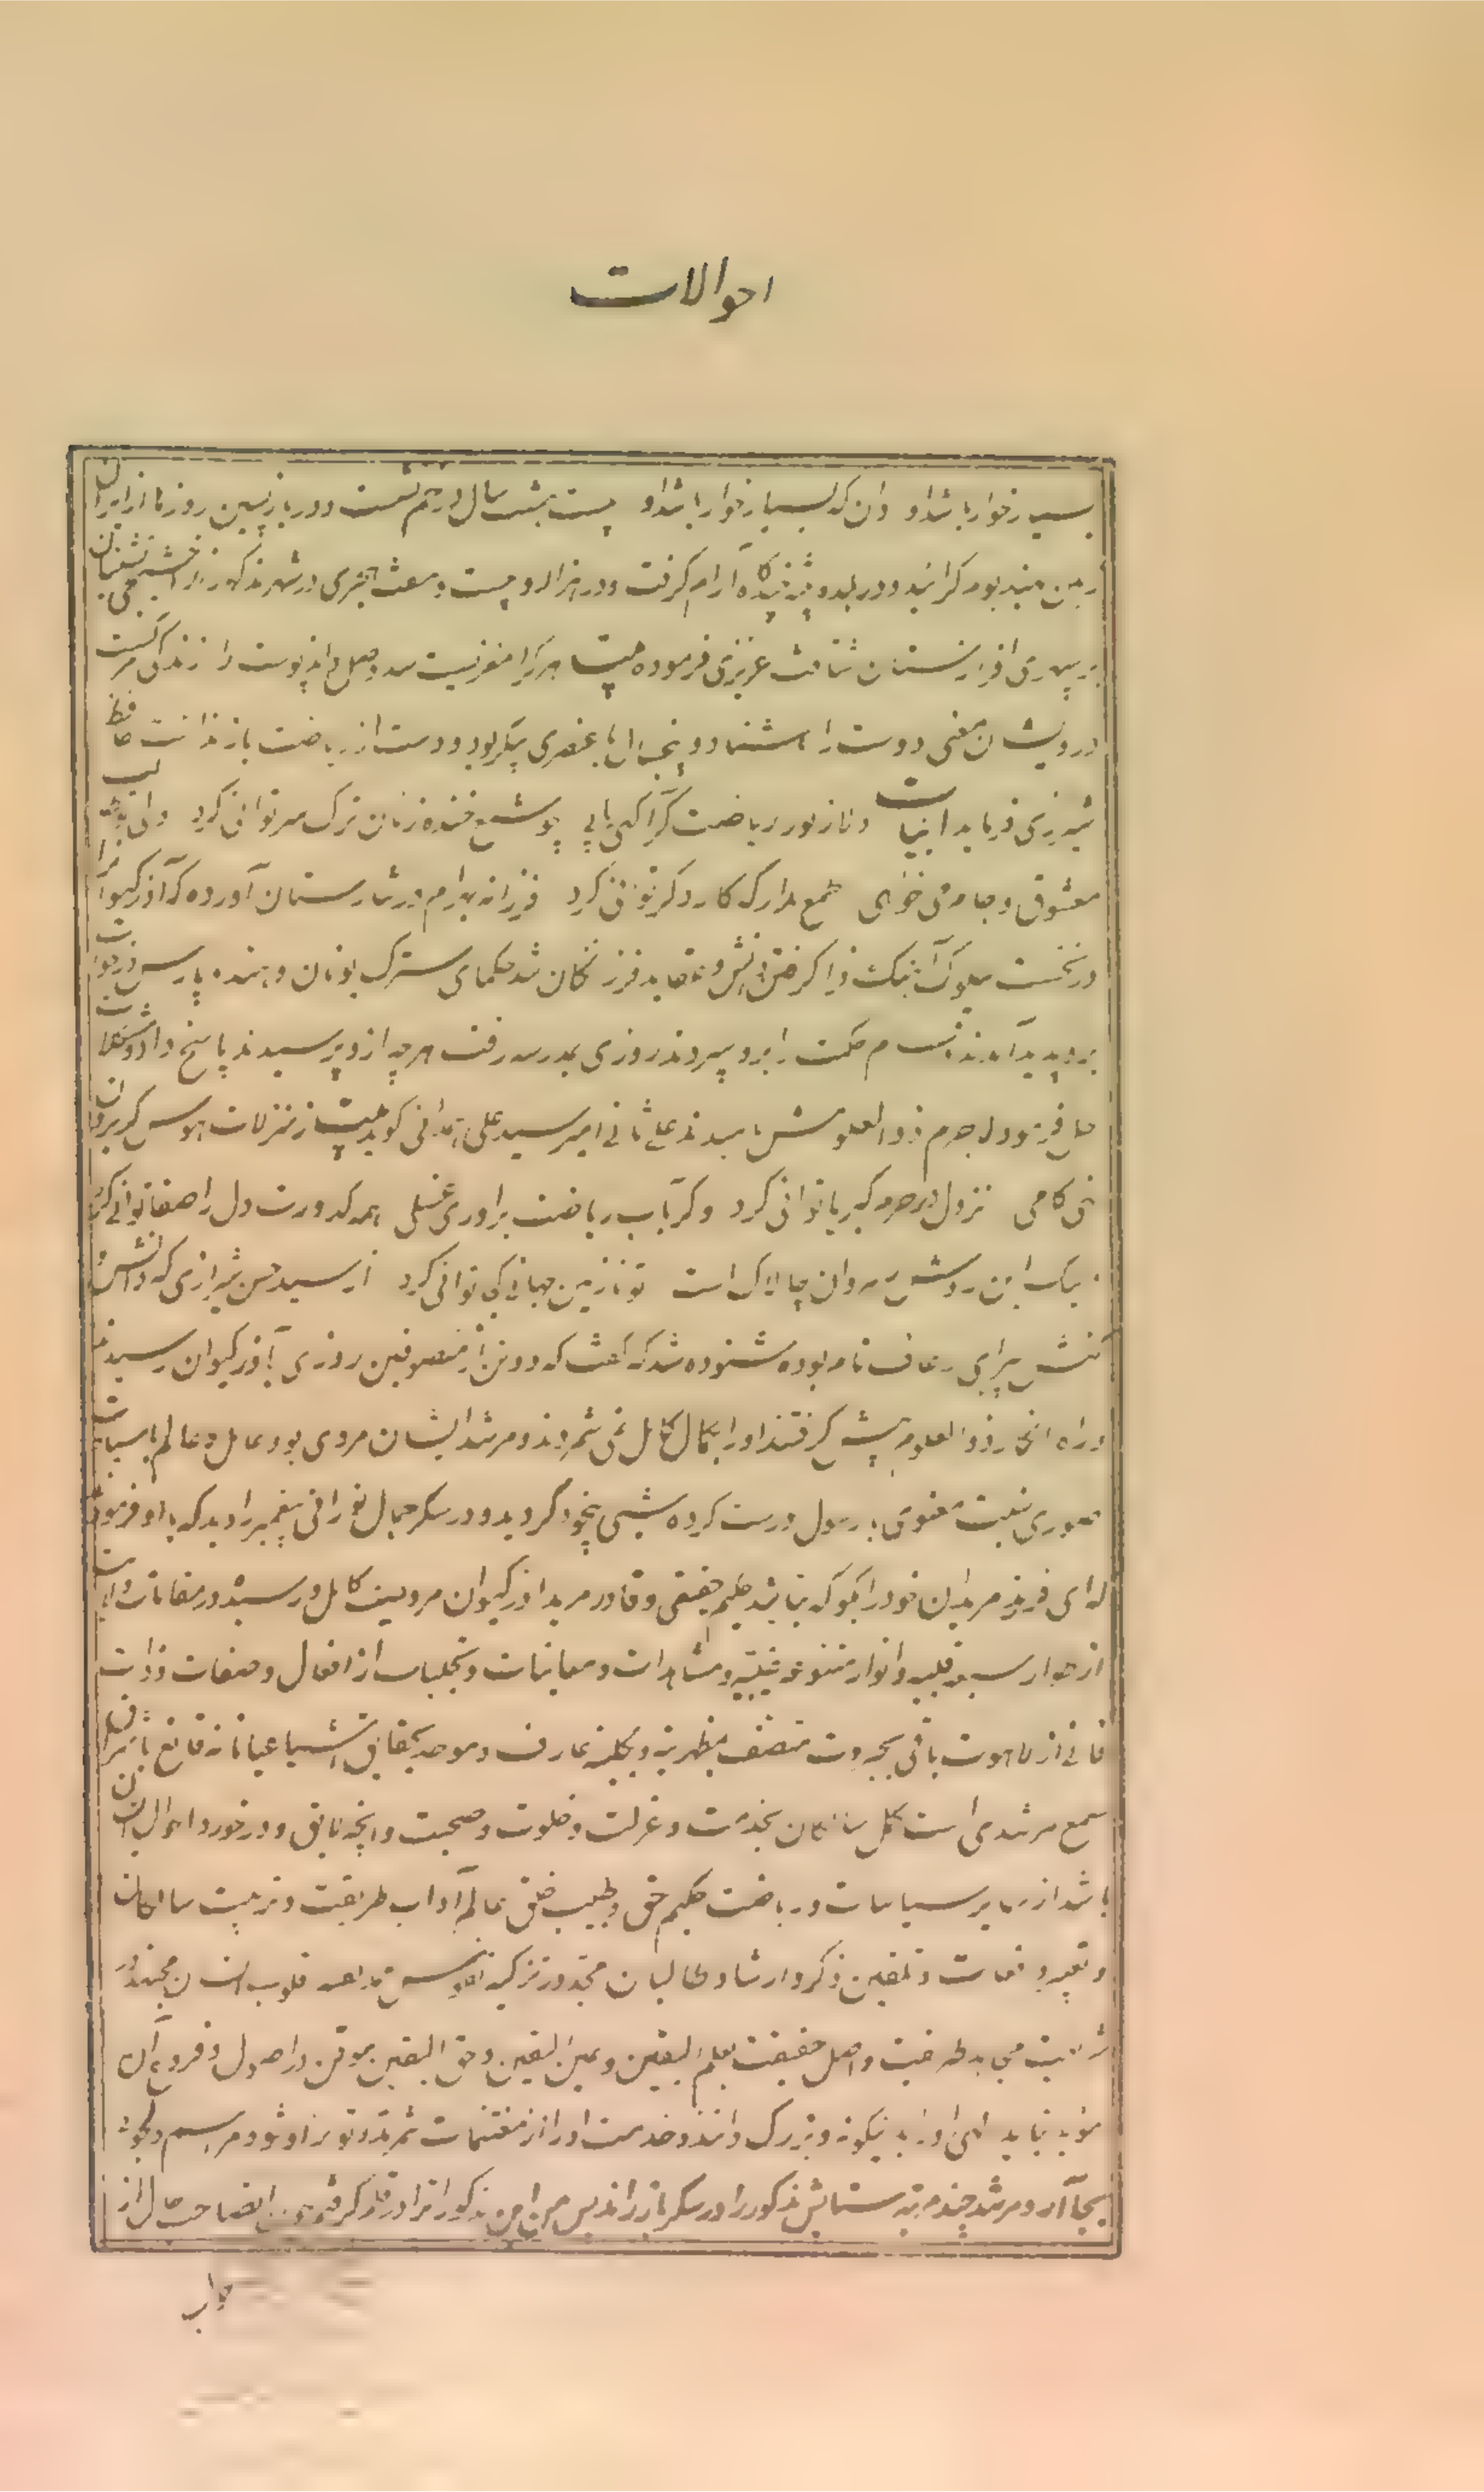 احوالات
بسیار خوار باشد او وان که بسیار خوار باشد او بیست هشت سال در خم نشست و در بازپسین روزها از ایران
زمین بهند بوم گرائید و در بلده پتنه آرام گرفت و در هزار و بیست و هفت هجری در شهر مذکور از
سپهری افرازستان شتافت عزیزی فرموده بیت هر کرا مغزیست داند پوست را زندگی مرگست
درویشان معنی دوست را هشتاد و پنج سال با عنصری پیکر بود و دست از ریاضت باز نداشت حافظ
شیرازی فرماید ابیات دلا ز نور ریاضت گر آگهی یابی چو شمع خنده زنان ترک سر توانی کرد ولی تو تا لب
معشوق و جام می خواهی طمع مدار که کار دگر توانی کرد فرزانه بهرام در شارستان آورده که آذر کیوان را
در نخست سلوک آهنگ فرا گرفتن دانش و عقاید فرزانگان شد حکمای سترک یونان و هند و پارس در خواب
برو پدید آمدند اقسام حکمت را برو سپردند روزی بمدرسه رفت هر چه ازو پرسیدند پاسخ داد و مشکلات
حل فرمود لاجرم ذو العلومش نامیدند علی ثانی امیر سید علی همدانی گوید بیت ز منزلات هوس گر برون
نهی گامی نزول در حرم کبریا توانی کرد وگر بآب ریاضت براوری غسلی همه کدورت دل را صفا توانی کرد
ولیک این روش رهروان چالاک است تو نازنین جهانی کجا توانی کرد از سید حسن شیرازی که دانش
کنش پیرایی عارف نام بوده شنوده شد که گفت که دو تن از متصوفین روزی بآذر کیوان رسیدند
و راه انکار ذو العلوم پیش گرفتند و او را بکمال کامل نمی شمردند و مرشد ایشان مردی بود عامل و عالم باسباب
صوری نسبت معنوی با رسول درست کرده شبی بیخود گردید و در سکر جمال نورانی پیغمبر را دید که باو فرمود
که ای فرزند مریدان خود را بگو که نباشد حکیم حقیقی و قادر مرید آذر کیوان مردیست کامل و رسیده در مقامات
از اطوار سبعه قلبیه و انوار متنوعه غیبیه و مشاهدات و معاینات و تجلیات از افعال و صفات و ذات
فانی از ناهوت باقی بجبروت متصف بمظهریه و بکلیه عارف و موحد بحقایق اشیا عیانا نه قانع
سمع مرشدی است سالکان بخدمت و عزلت و خلوت و صحبت و آنچه لایق و در خورد احوال ایشان
باشد از سایر سیاسات و ریاضت حکیم حق و طبیب خلق عالم آداب طریقت و تربیت سالکان
و تعبیر واقعات و تلقین ذکر و ارشاد طالبان مجد در تزکیه نفوس قلوب ایشان مجتهد در
شریعت طریقت و اصل حقیقت بعلم الیقین و عین الیقین و حق الیقین موقن در اصول و فروع آن
موید نباید او را بد نیکو و بزرگ دانند و خدمت او را از مغتنمات شمرید و تو نزد او شو و مراسم دلجوئی
بجا آر و مرشد چند مرتبه ستایش مذکور را در سکر باز راند پس من مذکورات را در قلم گرفتم صاحب حال از
خواب